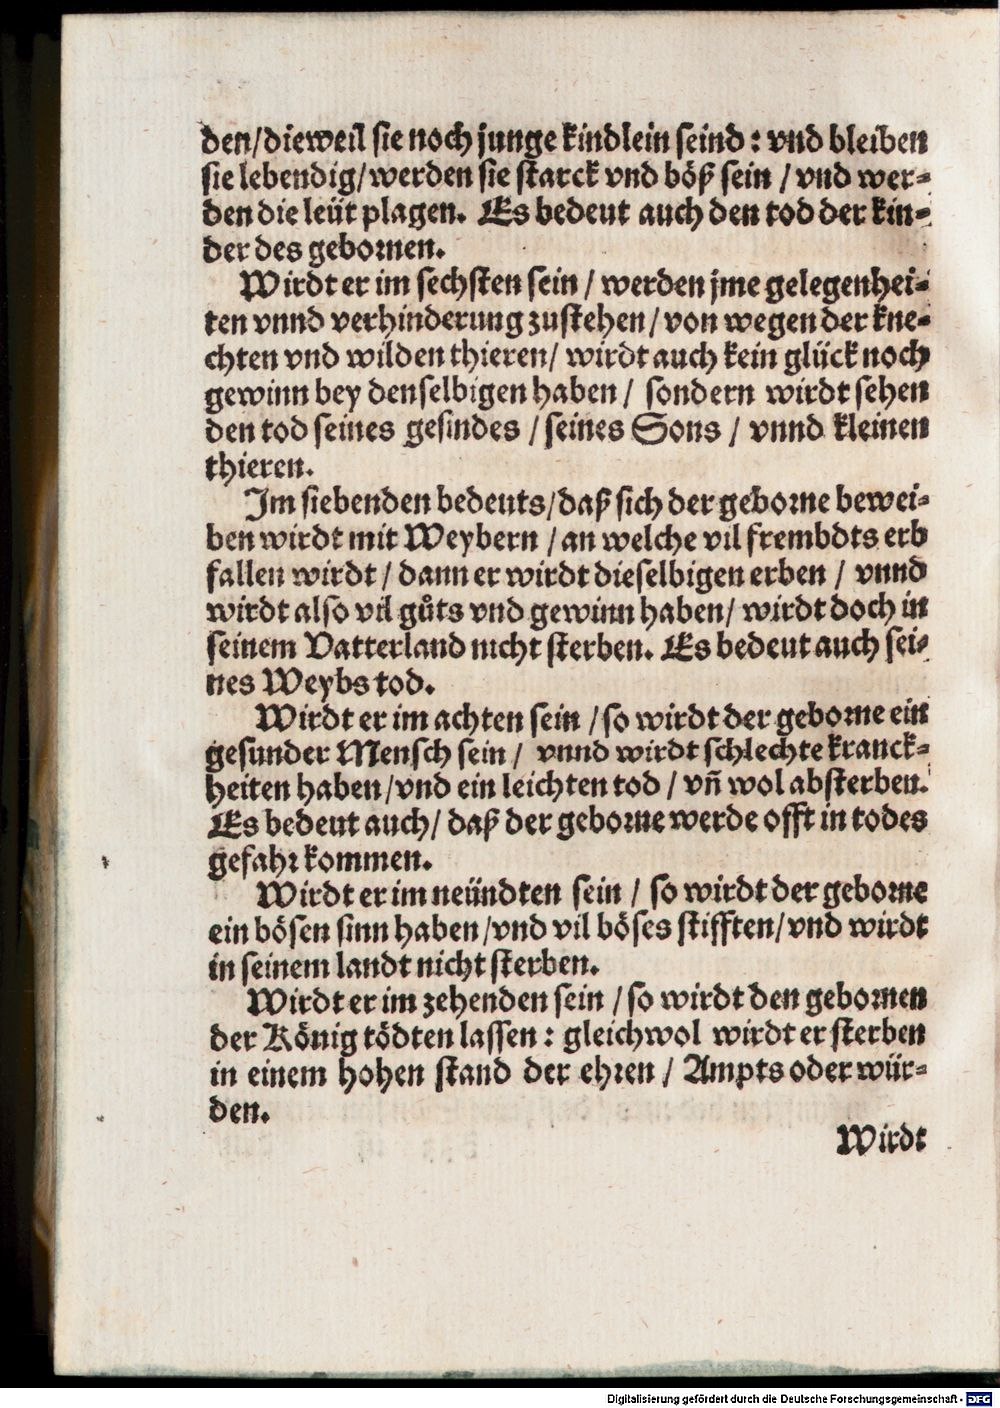 den/dieweil sie noch junge kindlein seind: vnd bleiben
sie lebendig/werden sie starck vnd böß sein / vnd wer-
den die leüt plagen. Es bedeut auch den tod der kin-
der des gebornen.
Wirdt er im sechsten sein / werden jme gelegenhei-
ten vnnd verhinderung zustehen/von wegen der kne-
chten vnd wilden thieren/ wirdt auch kein glück noch
gewinn bey denselbigen haben / sondern wirdt sehen
den tod seines gesindes /seines Sons / vnnd kleinen
thieren.
Im siebenden bedeuts/daß sich der geborne bewei-
ben wirdt mit Weybern /an welche vil frembdts erb
fallen wirdt / dann er wirdt dieselbigen erben / vnnd
wirdt also vil gůts vnd gewinn haben/ wirdt doch in
seinem Vatterland nicht sterben. Es bedeut auch sei-
nes Weybs tod.
Wirdt er im achten sein /so wirdt der geborne ein
gesunder Mensch sein / vnnd wirdt schlechte kranck-
heiten haben/vnd ein leichten tod / vñ wol absterben.
Es bedeut auch/ daß der geborne werde offt in todes
gefahr kommen.
Wirdt er im neündten sein / so wirdt der geborne
ein bösen sinn haben/vnd vil böses stifften/vnd wirdt
in seinem landt nicht sterben.
Wirdt er im zehenden sein /so wirdt den gebornen
der König tödten lassen: gleichwol wirdt er sterben
in einem hohen stand der ehren / Ampts oder wür-
den.
Wirdt
Digitalisierung gefördert durch die Deutsche Forschungsgemeinschaft - DFG